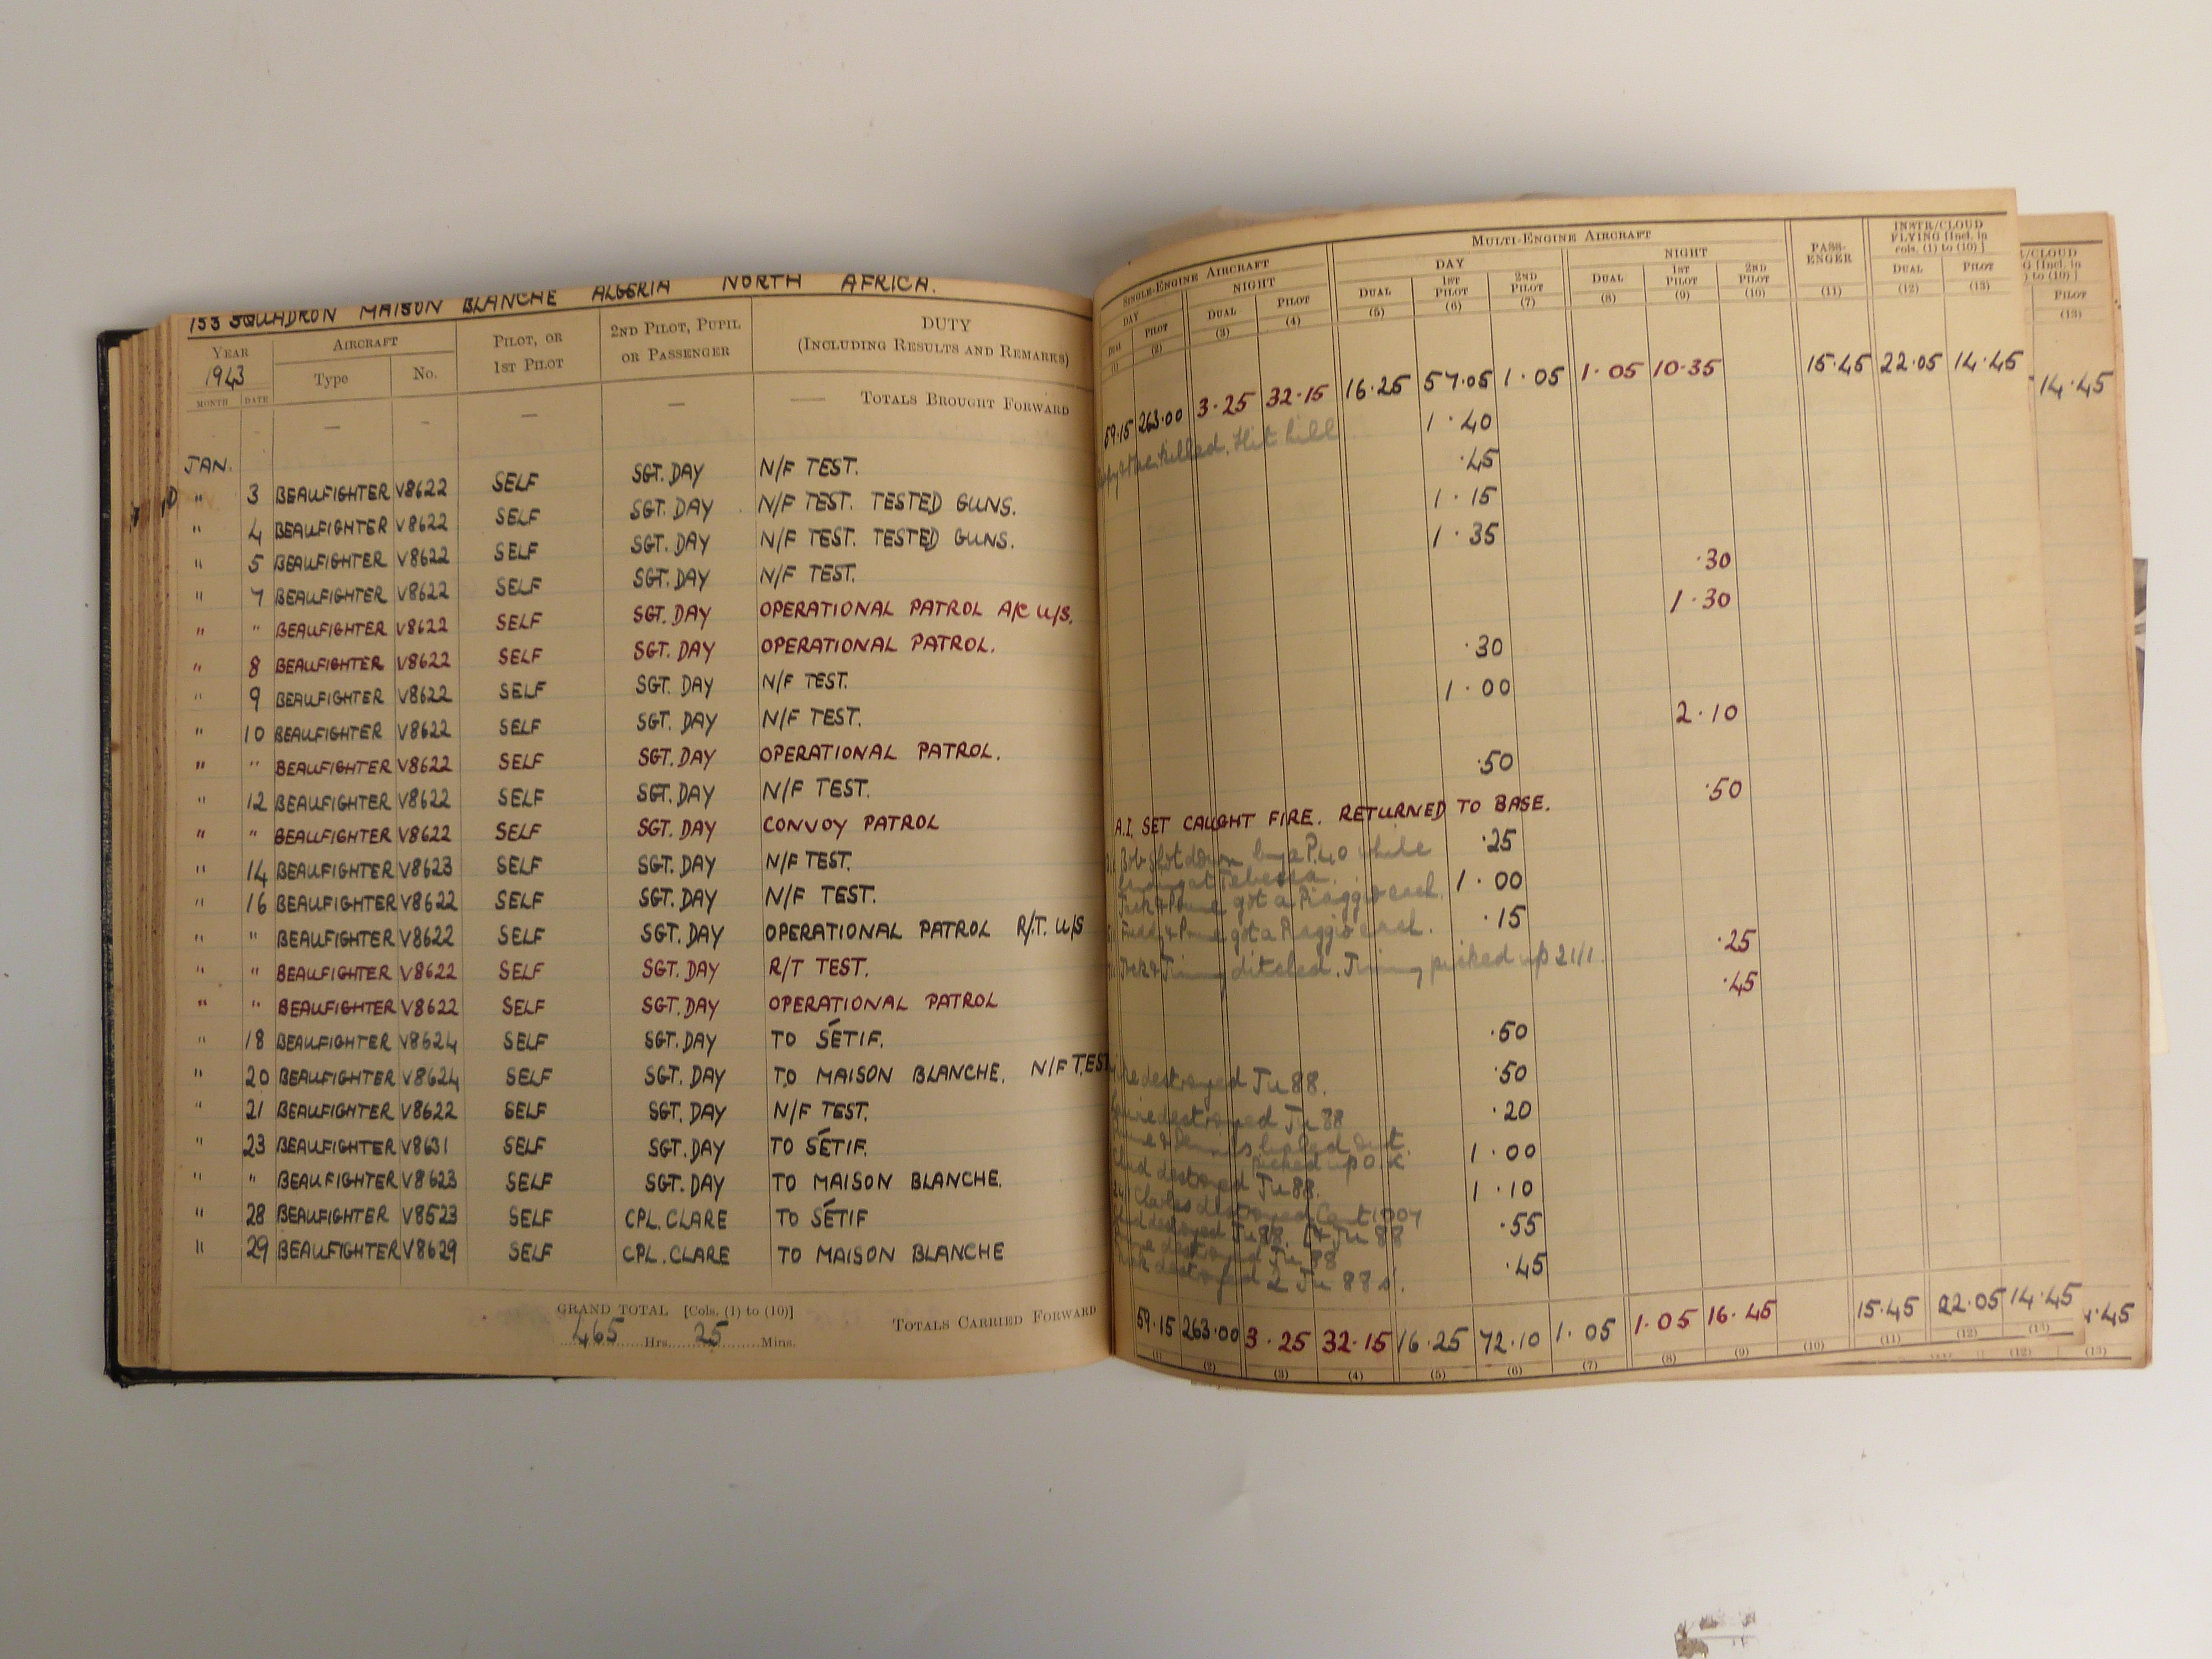 153 SQUADRON MAISON BLANCHE ALGERIA NORTH AFRICA.
YEAR AIRCRAFT PILOT, OR 1ST PILOT 2ND PILOT, PUPIL OR PASSENGER DUTY (INCLUDING RESULTS AND REMARKS)
1943 Type No.
MONTH DATE
— — — — — TOTALS BROUGHT FORWARD
JAN.
" 3 BEAUFIGHTER V8622 SELF SGT. DAY N/F TEST.
" 4 BEAUFIGHTER V8622 SELF SGT. DAY N/F TEST. TESTED GUNS.
" 5 BEAUFIGHTER V8622 SELF SGT. DAY N/F TEST. TESTED GUNS.
" 7 BEAUFIGHTER V8622 SELF SGT. DAY N/F TEST.
" " BEAUFIGHTER V8622 SELF SGT. DAY OPERATIONAL PATROL A/C U/S.
" 8 BEAUFIGHTER V8622 SELF SGT. DAY OPERATIONAL PATROL.
" 9 BEAUFIGHTER V8622 SELF SGT. DAY N/F TEST.
" 10 BEAUFIGHTER V8622 SELF SGT. DAY N/F TEST.
" " BEAUFIGHTER V8622 SELF SGT. DAY OPERATIONAL PATROL.
" 12 BEAUFIGHTER V8622 SELF SGT. DAY N/F TEST.
" " BEAUFIGHTER V8622 SELF SGT. DAY CONVOY PATROL
" 14 BEAUFIGHTER V8623 SELF SGT. DAY N/F TEST.
" 16 BEAUFIGHTER V8622 SELF SGT. DAY N/F TEST.
" " BEAUFIGHTER V8622 SELF SGT. DAY OPERATIONAL PATROL R/T. U/S
" " BEAUFIGHTER V8622 SELF SGT. DAY R/T TEST.
" " BEAUFIGHTER V8622 SELF SGT. DAY OPERATIONAL PATROL
" 18 BEAUFIGHTER V8624 SELF SGT. DAY TO SÉTIF.
" 20 BEAUFIGHTER V8624 SELF SGT. DAY TO MAISON BLANCHE. N/F TEST
" 21 BEAUFIGHTER V8622 SELF SGT. DAY N/F TEST.
" 23 BEAUFIGHTER V8631 SELF SGT. DAY TO SÉTIF.
" " BEAUFIGHTER V8623 SELF SGT. DAY TO MAISON BLANCHE.
" 28 BEAUFIGHTER V8523 SELF CPL. CLARE TO SÉTIF
" 29 BEAUFIGHTER V8629 SELF CPL. CLARE TO MAISON BLANCHE
GRAND TOTAL [Cols. (1) to (10)]
465 Hrs. 25 Mins.
TOTALS CARRIED FORWARD
SINGLE-ENGINE AIRCRAFT MULTI-ENGINE AIRCRAFT PASS-ENGER INSTR/CLOUD FLYING [Incl. in cols. (1) to (10)]
DAY NIGHT DAY NIGHT
PILOT DUAL PILOT DUAL 1ST PILOT 2ND PILOT DUAL 1ST PILOT 2ND PILOT DUAL PILOT
(1) (2) (3) (4) (5) (6) (7) (8) (9) (10) (11) (12) (13)
59.15 263.00 3.25 32.15 16.25 57.05 1.05 1.05 10.35 15.45 22.05 14.45
1.40
killed. Hit hill
.45
1.15
1.35
.30
1.30
.30
1.00
2.10
.50
.50
A.I. SET CAUGHT FIRE. RETURNED TO BASE.
Bob shot down by a P.40 while
at Tebessa.
.25
got a Piaggio each.
1.00
got a Piaggio each.
.15
ditched. Jimmy picked up 21/1.
.25
.45
.50
destroyed Ju 88.
.50
destroyed Ju 88
.20
baled out.
picked up O.K.
1.00
destroyed Ju 88.
1.10
Charles destroyed Cant 1007
destroyed Ju 88. Ju 88
.55
destroyed Ju 88
destroyed 2 Ju 87s.
.45
59.15 263.00 3.25 32.15 16.25 72.10 1.05 1.05 16.45 15.45 22.05 14.45
(1) (2) (3) (4) (5) (6) (7) (8) (9) (10) (11) (12) (13)
/CLOUD
[Incl. in
to (10)]
PILOT
(13)
14.45
.45
(12) (13)